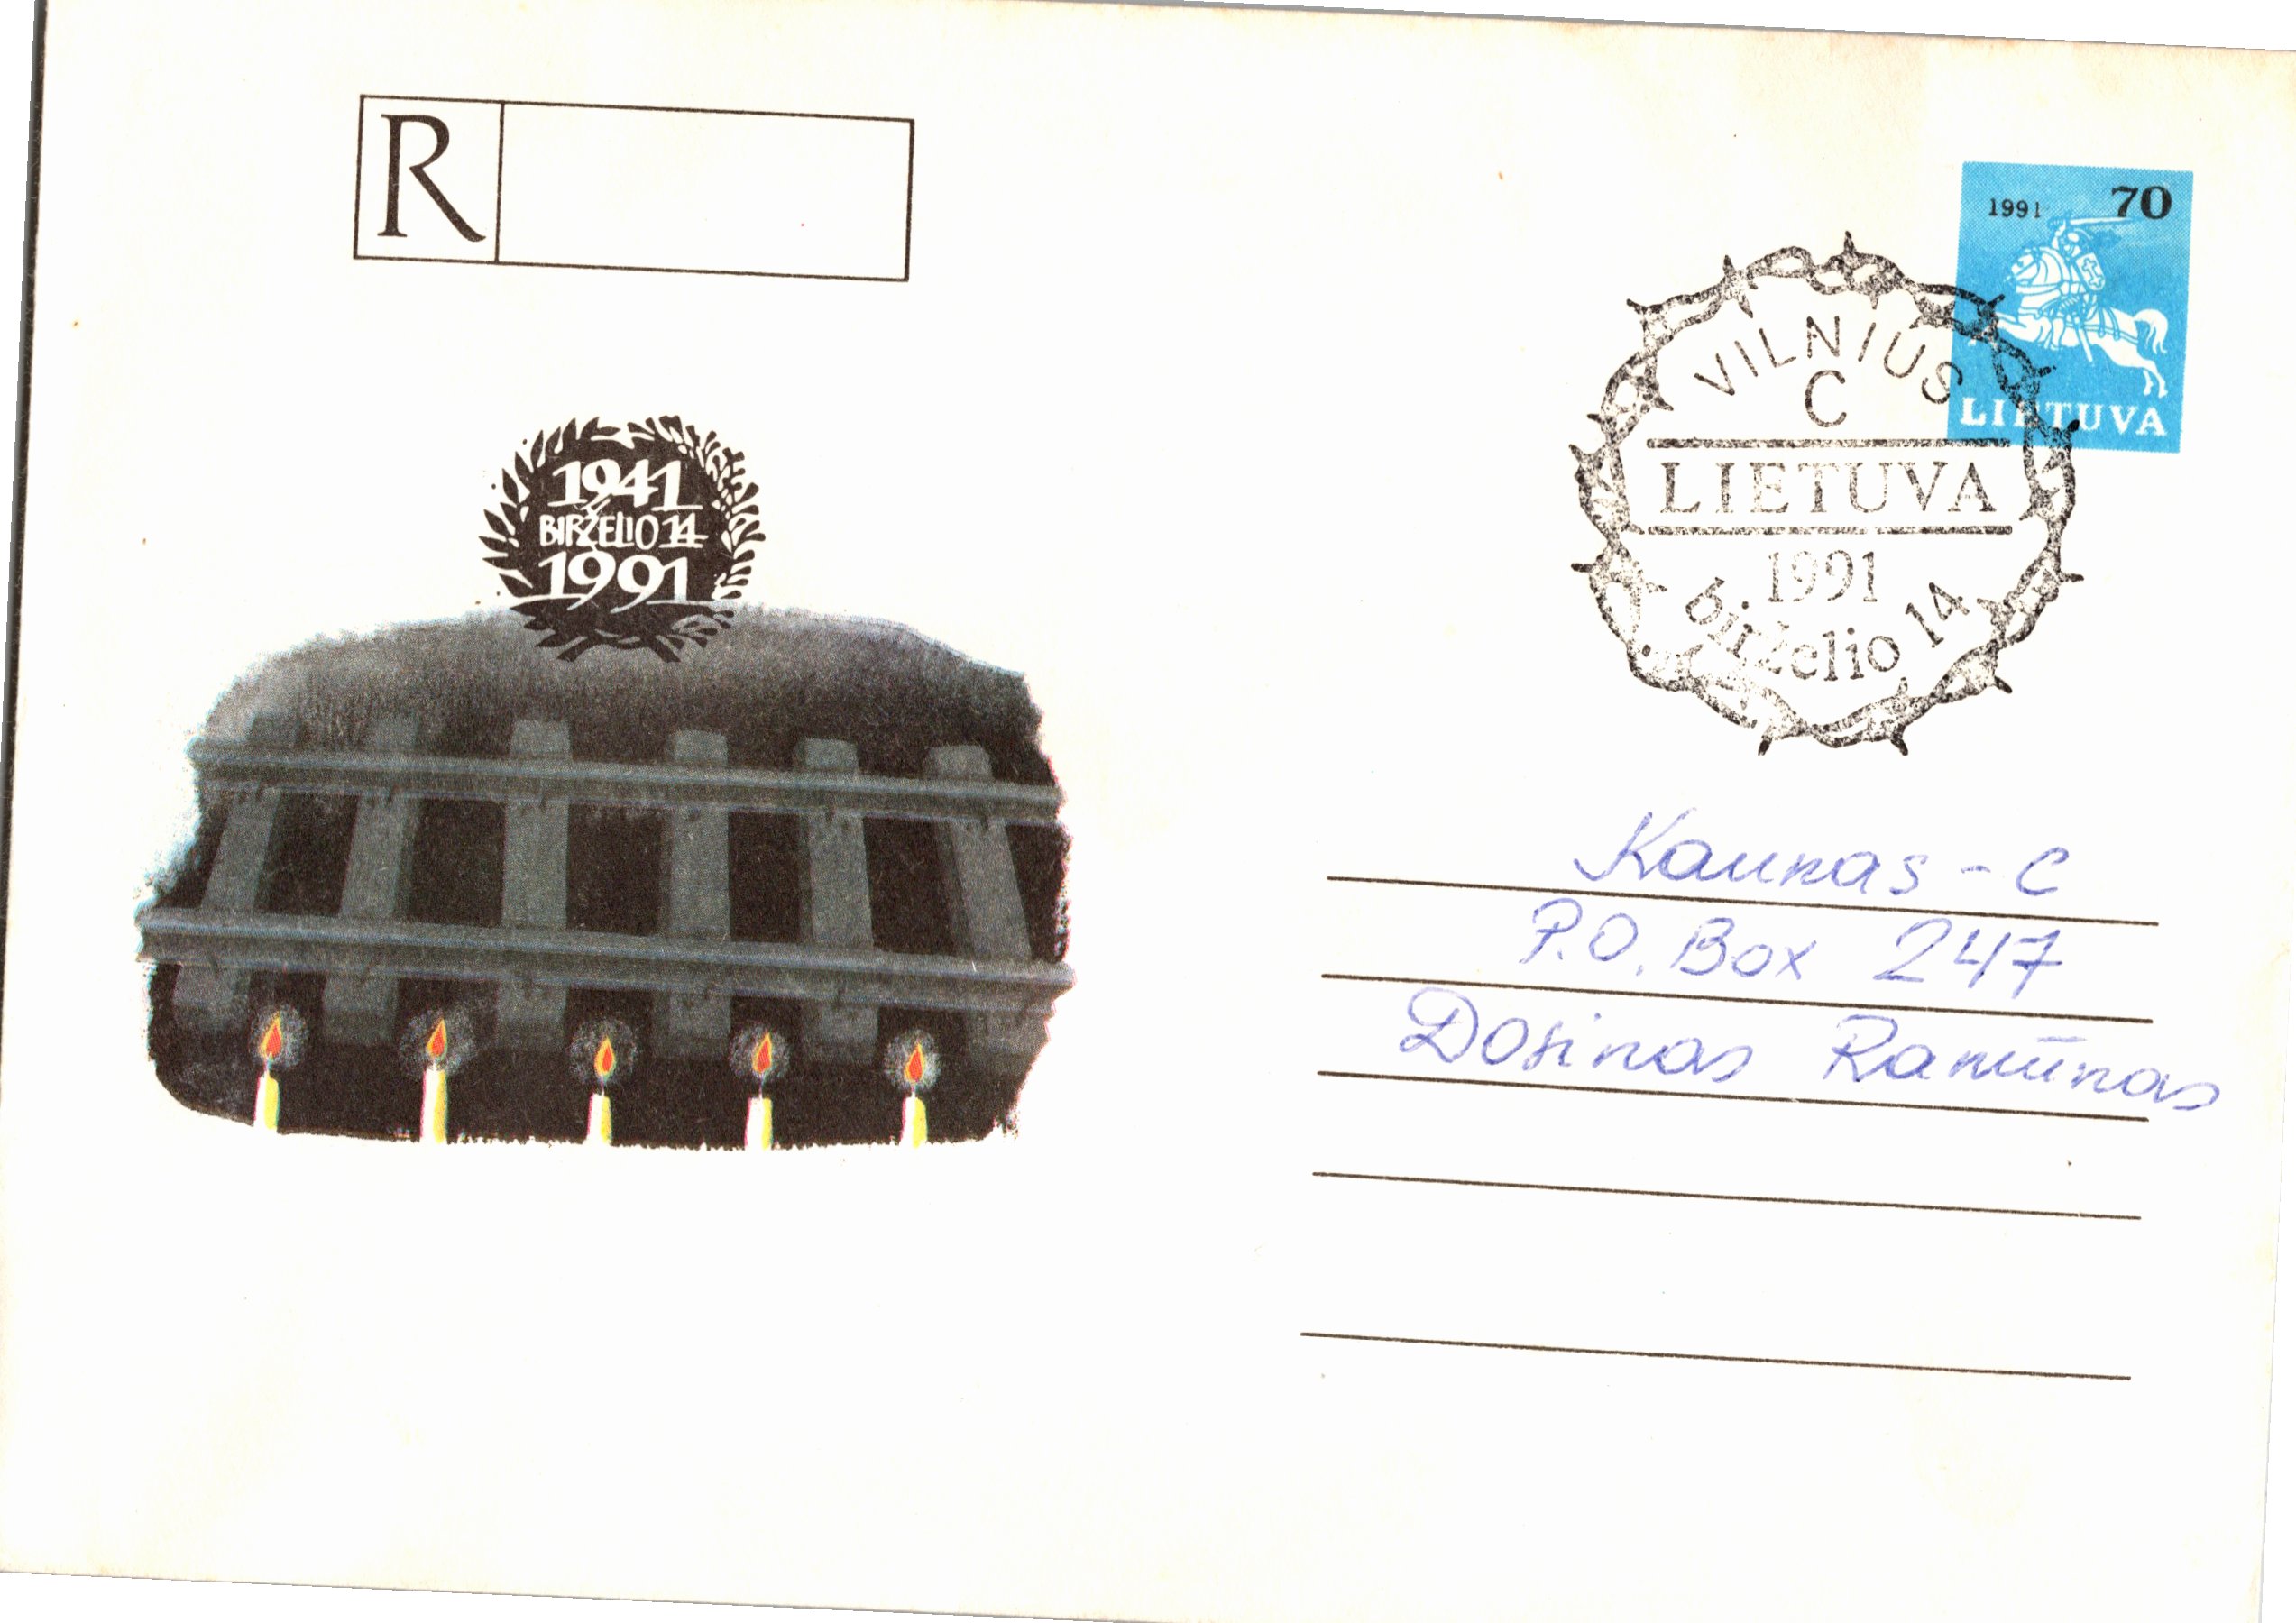 R
1991 70
LIETUVA
VILNIUS
C
LIETUVA
1991
birželio 14
1941
BIRŽELIO 14
1991
Kaunas - C
P.O. Box 247
Dosinas Ramūnas